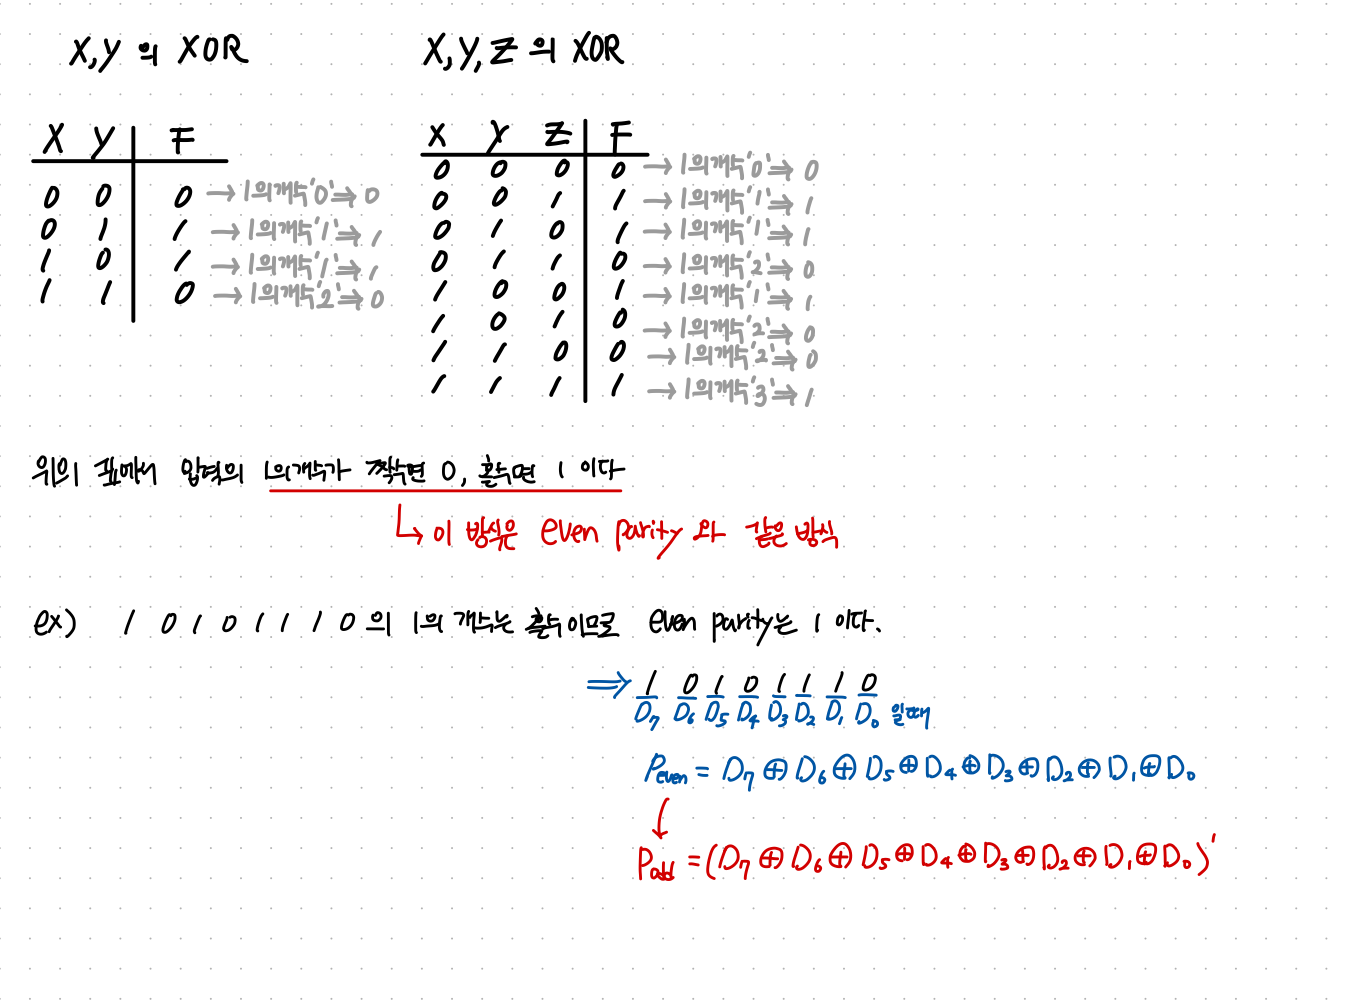 X,Y 의 XOR
X Y F
0 0 0 → 1의개수'0'⇒ 0
0 1 1 → 1의개수'1'⇒ 1
1 0 1 → 1의개수'1'⇒ 1
1 1 0 → 1의개수'2'⇒ 0
X,Y,Z 의 XOR
X Y Z F
0 0 0 0 → 1의개수'0'⇒ 0
0 0 1 1 → 1의개수'1'⇒ 1
0 1 0 1 → 1의개수'1'⇒ 1
0 1 1 0 → 1의개수'2'⇒ 0
1 0 0 1 → 1의개수'1'⇒ 1
1 0 1 0 → 1의개수'2'⇒ 0
1 1 0 0 → 1의개수'2'⇒ 0
1 1 1 1 → 1의개수'3'⇒ 1
위의 표에서 입력의 1의개수가 짝수면 0, 홀수면 1 이다
↳ 이 방식은 even parity 와 같은 방식
ex) 1 0 1 0 1 1 1 0 의 1의 개수는 홀수이므로 even parity는 1 이다.
⇒ 1 0 1 0 1 1 1 0
D₇ D₆ D₅ D₄ D₃ D₂ D₁ D₀ 일때
Peven = D₇ ⊕ D₆ ⊕ D₅ ⊕ D₄ ⊕ D₃ ⊕ D₂ ⊕ D₁ ⊕ D₀
↓
Podd = (D₇ ⊕ D₆ ⊕ D₅ ⊕ D₄ ⊕ D₃ ⊕ D₂ ⊕ D₁ ⊕ D₀)'